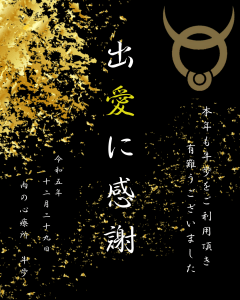 本年も牛歩をご利用頂き
有難うございました
出愛に感謝
令和五年
十二月二十九日
肉の心療所 牛歩